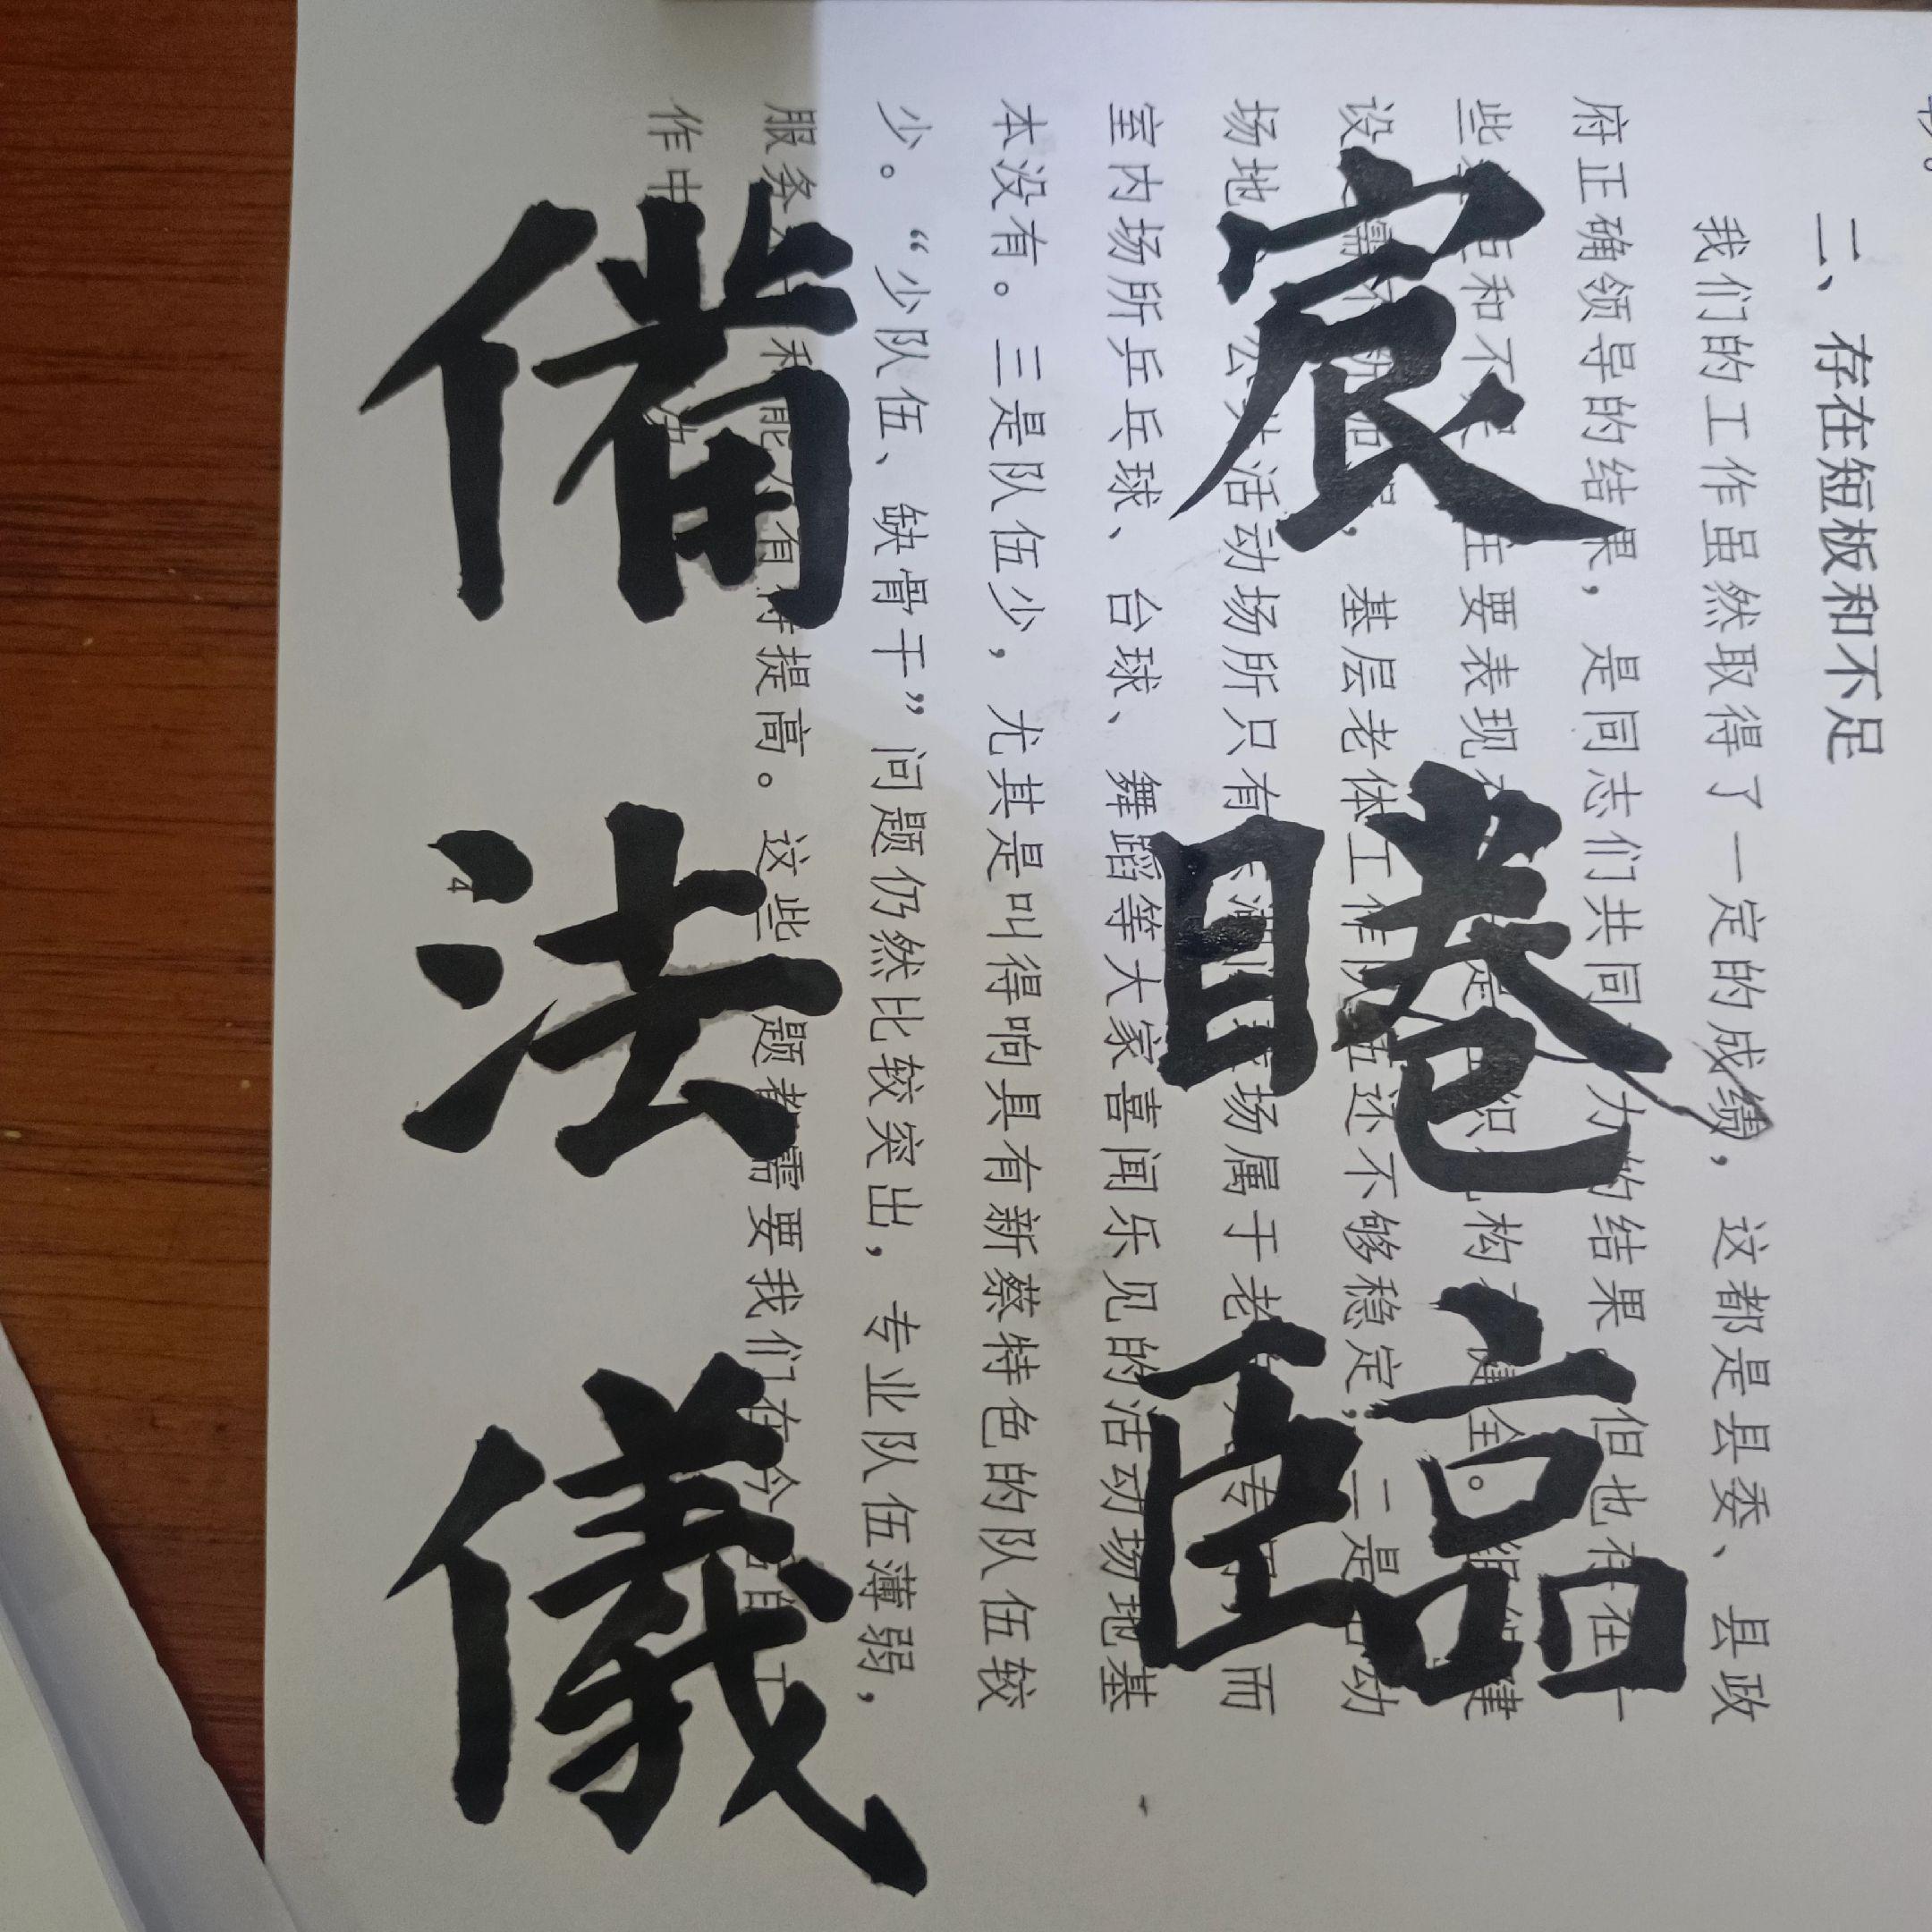 宸睠臨
備法儀
二、存在短板和不足
我们的工作虽然取得了一定的成绩，这都是县委、县政
府正确领导的结果，是同志们共同 力的结果 但也存在一
些 距和不 主要表现 是 织 构 健全。组织建
设 需 基层老体工作队伍还不够稳定，二是活动
场地 公共活动场所只有 场属于老 专 而
室内场所乒乓球、台球、舞蹈等大家喜闻乐见的活动场地基
本没有。三是队伍少，尤其是叫得响具有新蔡特色的队伍较
少。“少队伍、缺骨干”问题仍然比较突出，专业队伍薄弱，
服务 和能 有待提高。这些 题都需要我们在今后的工
作中 决
4